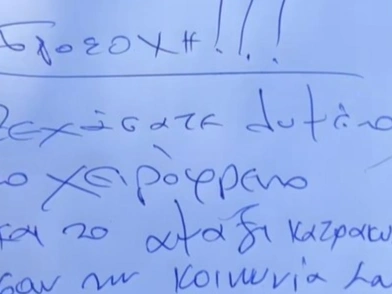 Προσοχη!!!
Ξεχάσατε λυμένο
το χειρόφρενο
και το αμάξι κατρακυ
σαν την κοινωνία μα